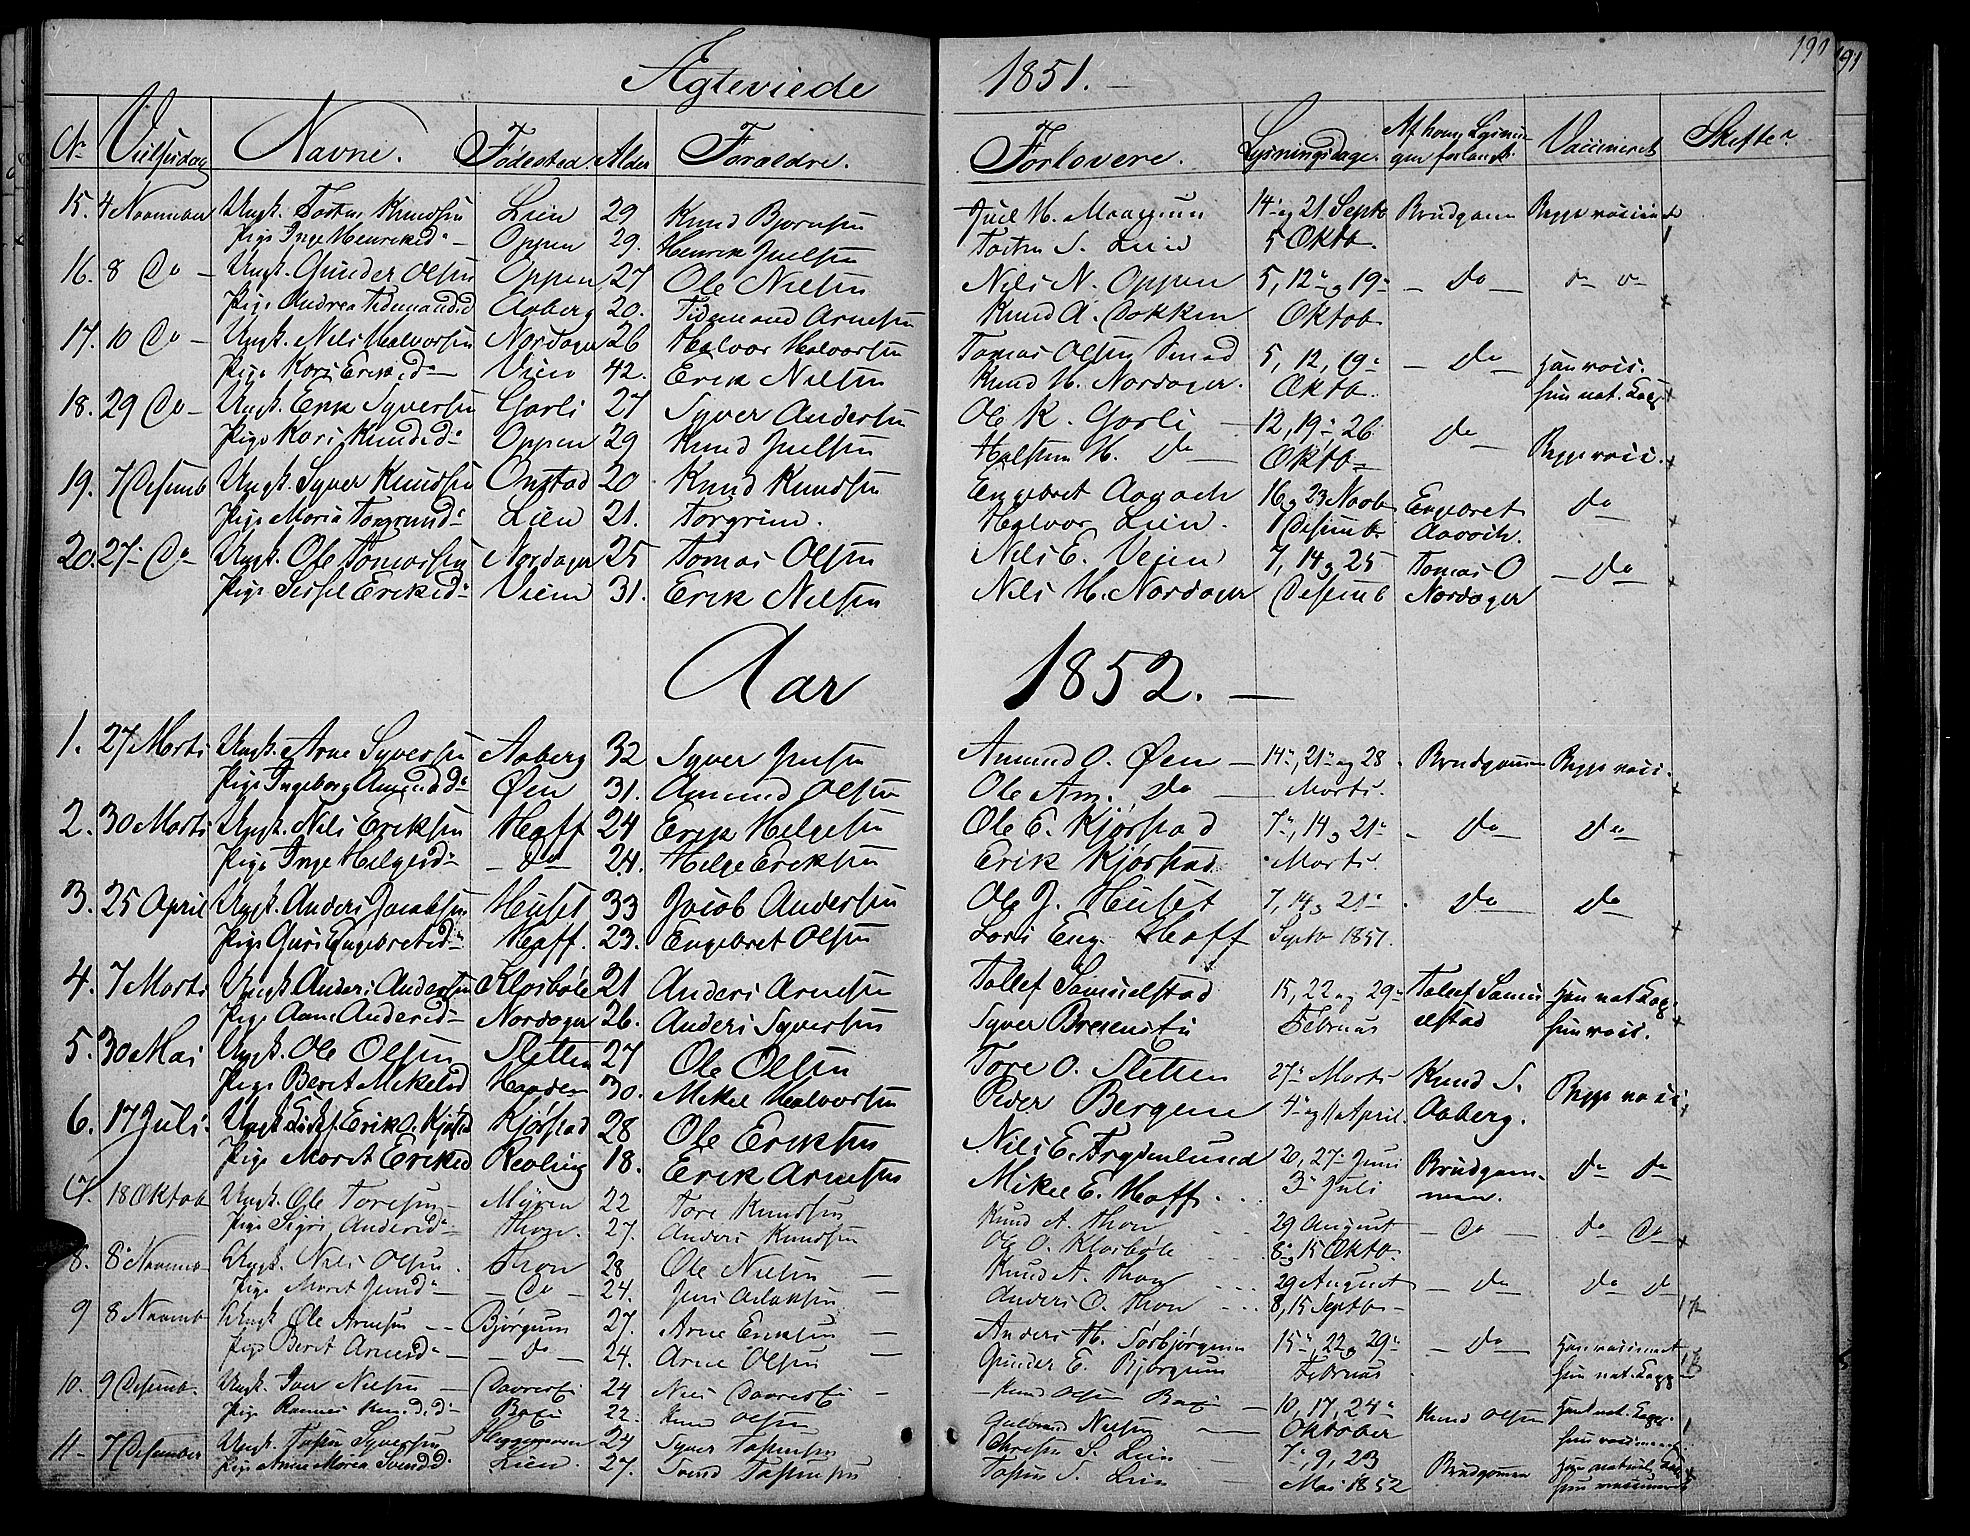 190
191
Ægteviede 1851. –
No Vielsesdag Navne. Fødested Alder Foreldre. Forlovere. Lysningsdage. Af hvem Lysningen forlangt. Vaccineret Skifte
15. 4 November Ungk. Knudsen Lien 29 Knud Bjørnsen Juel H. 14 og 21 Septb Brudgom Begge vaccin
Pige Inge Henriksd Oppen 29. Henrik Juelsen S. Lien 5 Oktb.
16. 8 Do – Ungk. Gunder Olsen Oppen 27 Ole Nielsen Nils N. Oppen 5, 12 og 19 – Do –
Pige Andrea Tidemandsd Aaberg 20. Tidemand Arnesen Knud A. Bakken Oktob.
17. 10 Do – Ungk. Nils Halvorsen Nordager 26 Halvor Halvorsen Tomas Olsen 5, 12, 19 – Do – han vacc.
Pige Kari Eriksd – Vien 42. Erik Nielsen Knud H. Nordager. Oktb. hun nat. Kop.
18. 29 Do – Ungk. Erik Syversen Garli 27 Syver Andersen Ole K. Garli – 12, 19, 26. Do – Begge vacci.
Pige Kari Knudsd Oppen 29 Knud Juelsen Halsten H. Do – Oktb –
19. 7 Desemb Ungk. Syver Knudsen Onstad 20 Knud Knudsen Engebret 16 og 23 Novb Engebret Do
Pige Maria Torgrimsd Lien 21. Torgrim. Halvor Lien. 1 Desemb.
20. 27 Do – Ungk. Ole Tomassen Nordager 25 Tomas Olsen Nils E. Vejen 7, 14 og 25 Tomas O – Do
Pige Sissel Eriksd Viem 31. Erik Nielsen Nils H. Nordager Desemb Nordager
Aar 1852. –
1. 27 Marts Ungk. Arne Syversen Aaberg 32 Syver Jensen Amund O. Øen – 14, 21 og 28 Brudgommen Begge vacci.
Pige Ingeborg Amundsd Øen 31. Amund Olsen Ole Am. Do – Marts.
2. 30 Marts Ungk. Nils Eriksen Hoff 24 Erik Helgesen Ole E. Kjørstad 7, 14 og 21 – Do – Do
Pige Inge Helgesd – Do – 24. Helge Eriksen Erik Kjørstad Marts.
3. 25 April Ungk. Anders Jacobsen Huset 33 Jacob Andersen Ole J. Huset 7, 14 og 21 Do – Do
Pige Guri Engebretsd Hoff. 23. Engebret Olsen Lars Eng. Hoff Septb 1851.
4. 7 Marts Ungk. Anders Andersen Klosbøle 21 Anders Arnesen Tollef Samuelstad 15, 22 og 29 Tollef Samuelstad han nat. Kop.
Pige Andersd – Nordager 26. Anders Syversen Syver Februar hun vacc.
5. 30 Mai Ungk. Ole Olsen Sletten 27 Ole Olsen Tore O. Sletten 27 Marts Knud S. Begge vacci
Pige Berit Mikelsd 30. Mikel Halvorsen Peder Bergene 4 og 11 April. Aaberg.
6. 17 Juli. Ungk. Erik O. Kjørstad Kjørstad 28 Ole Eriksen Nils E. Frydenlund 20, 27 Juni Brudgommen. Do Do
Pige Marit Eriksd 18. Erik Arnesen Mikel E. Hoff. 3 Juli
7. 18 Oktob Ungk. Ole Toresen Myren 22 Tore Knudsen Knud A. Thon 29 August – Do – Do Do
Pige Sigri Andersd Thon. 27. Anders Knudsen Ole O. Klosbøle 8 og 15 Oktb.
8. 8 Novemb Ungk. Nils Olsen. Thon 28 Ole Nielsen – Knud A. Thon 29 August – Do – Do Do
Pige Marit Jensd – Do – 24. Jens – Anders O. Thon 8, 15 Septb –
9 8 Novemb Ungk. Ole Arnesen – Bjørgum 27. Arne Eriksen – Anders H. Sørbjørgum 15, 22 og 29 – Do – Han vaccineret
Pige Berit Arnesd – – Do – 24. Arne Olsen – Gunder E. Bjørgum Februar hun nat. Kop
10. 9 Desemb. Ungk. Iver Nielsen – 24 Niels – Knud Olsen – 10, 17, 24 Knud Olsen Han nat. Kop.
Pige Knudsd 22. Knud Olsen Gulbrand Nielsen – Oktober hun vaccineret
11 – 7 Desember Ungk. Syversen Heggenæren 24 Syver Christen S. Lien – 7, 9, 23 Brudgommen Han naturl. Kop
Pige Anne Maria Svendsd Lien. 27. Svend S. Lien Mai 1852 hun vaccineret